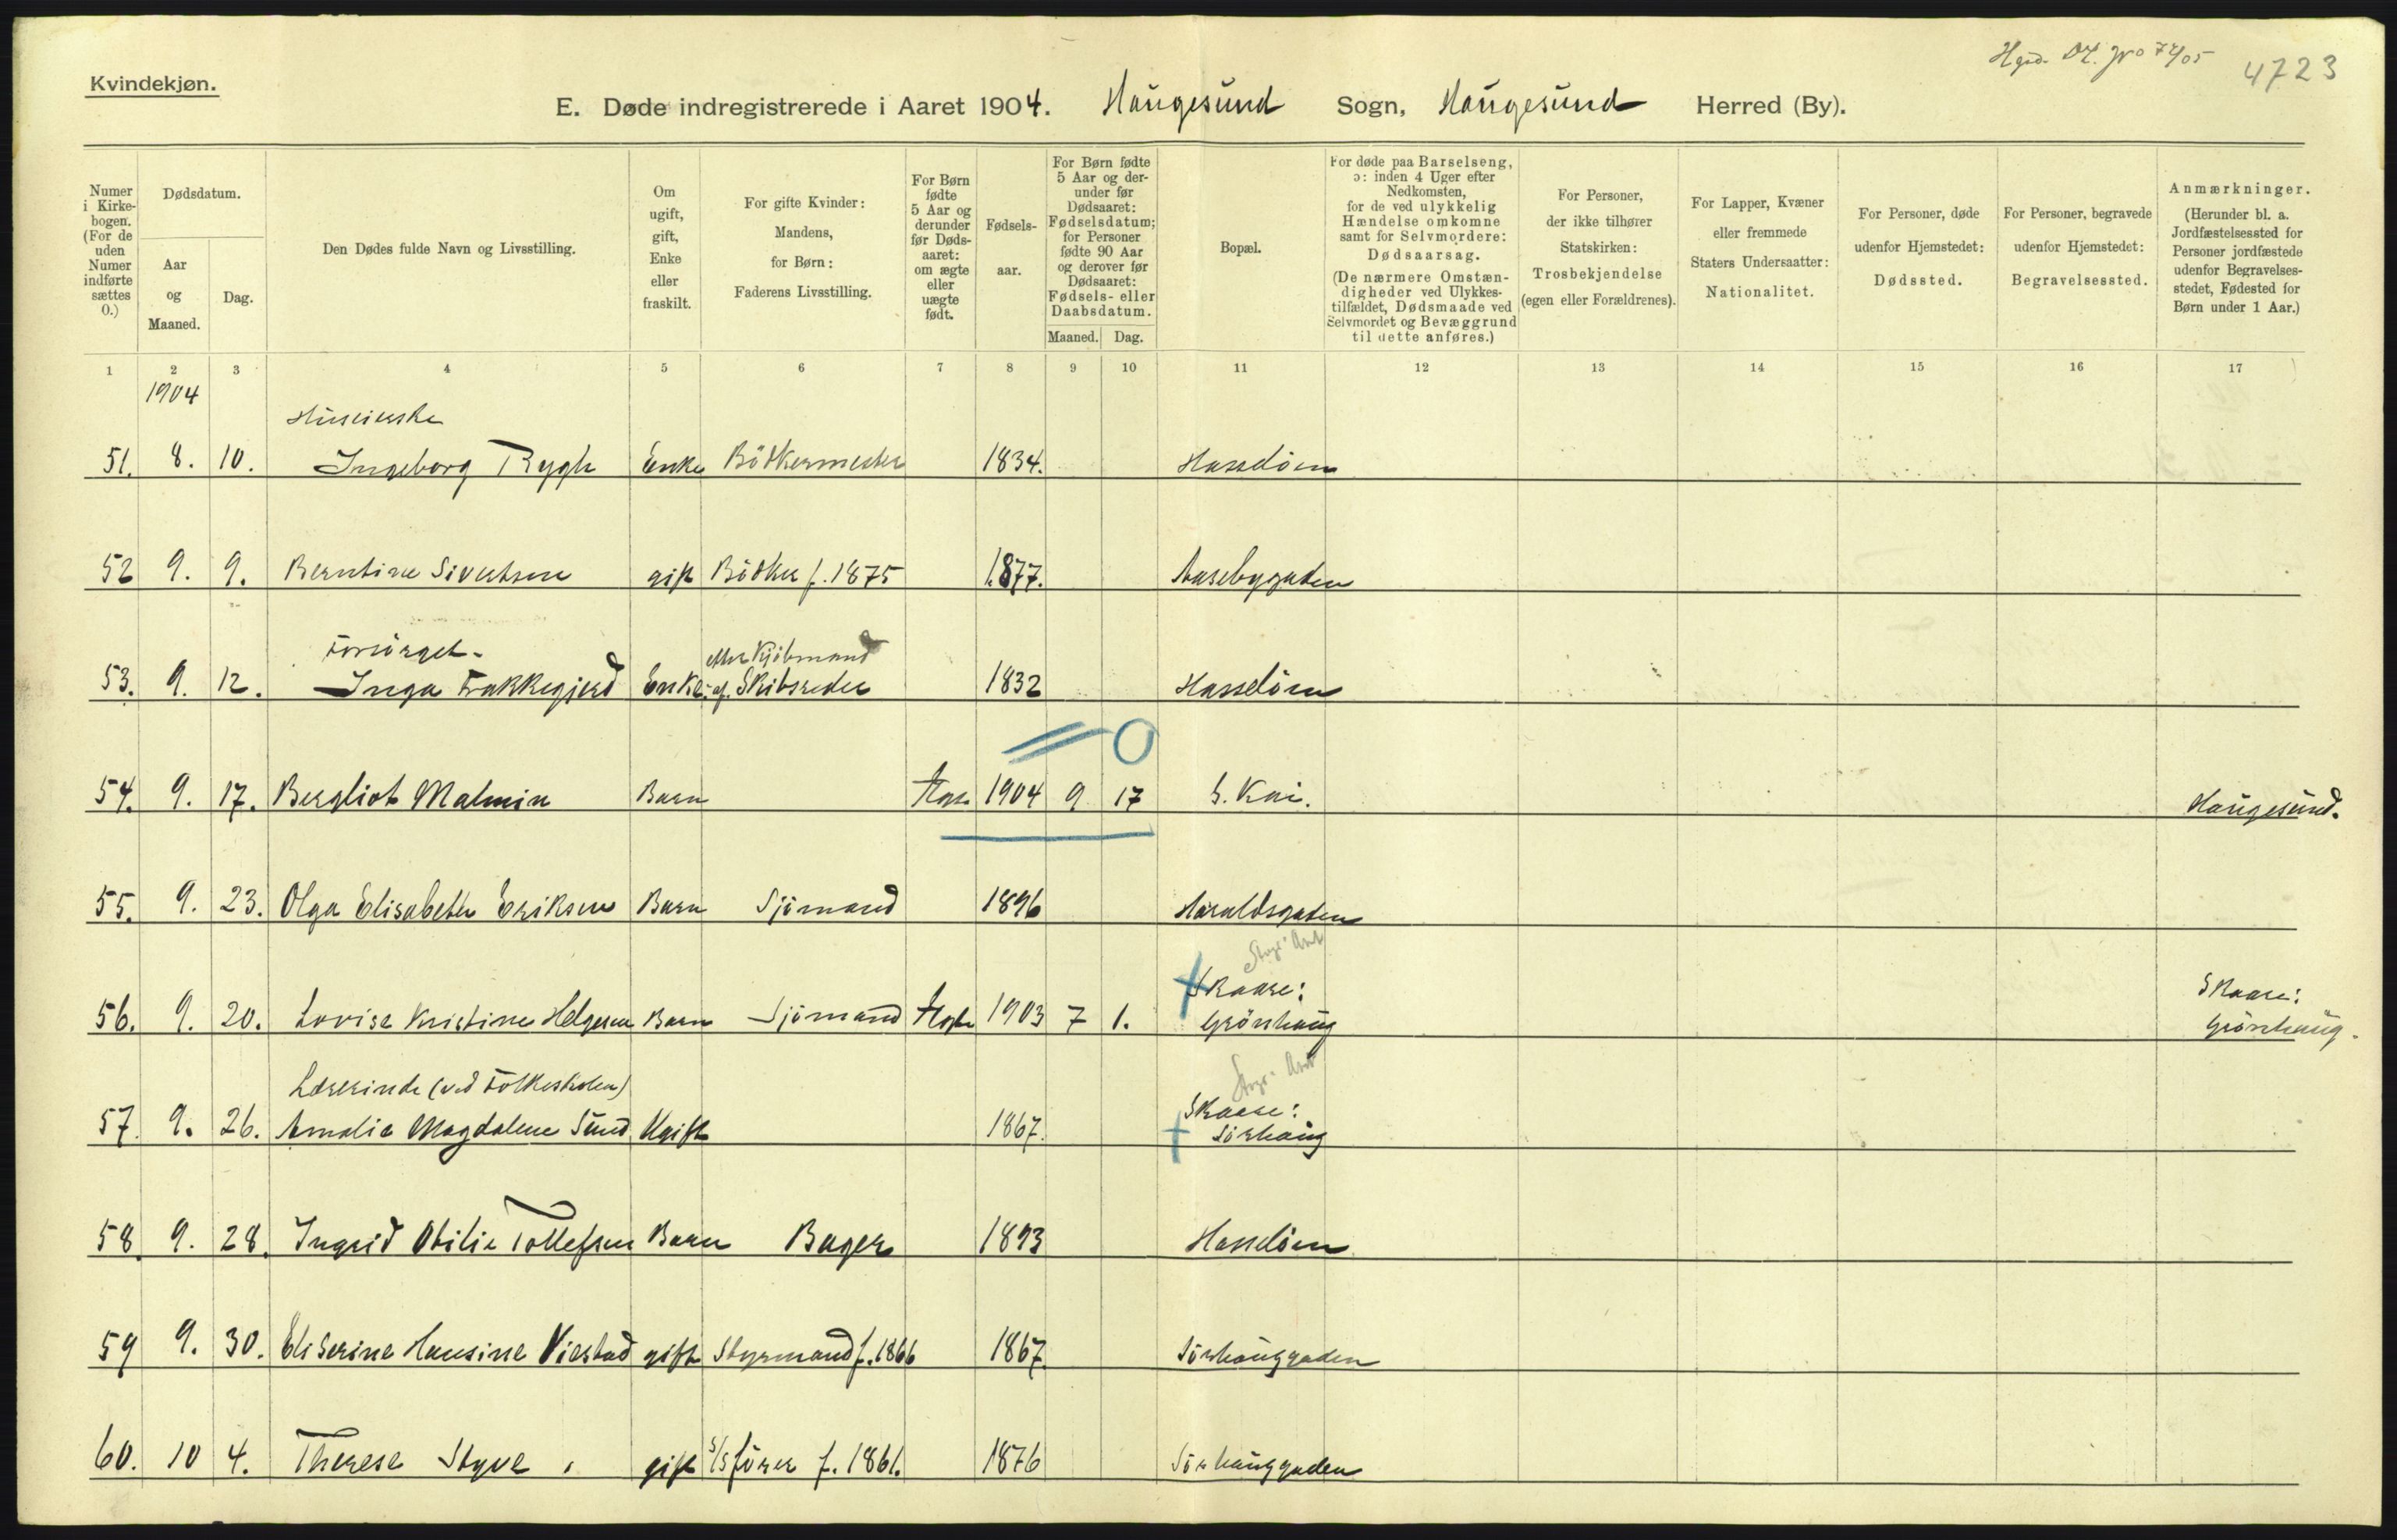 Kvindekjøn.
4723
E. Døde indregistrerede i Aaret 1904. Haugesund Sogn, Haugesund Herred (By).
Numer i Kirkebogen. (For de uden Numer indførte sættes 0.)
Dødsdatum.
Aar og Maaned.
Dag.
Den Dødes fulde Navn og Livsstilling.
Om ugift, gift, Enke eller fraskilt.
For gifte Kvinder: Mandens, for Børn: Faderens Livsstilling.
For Børn fødte 5 Aar og derunder før Dødsaaret: om ægte eller uægte født.
Fødselsaar.
For Børn fødte 5 Aar og derunder før Dødsaaret: Fødselsdatum; for Personer fødte 90 Aar og derover før Dødsaaret: Fødsels- eller Daabsdatum.
Maaned. Dag.
Bopæl.
For døde paa Barselseng, ɔ: inden 4 Uger efter Nedkomsten, for de ved ulykkelig Hændelse omkomne samt for Selvmordere: Dødsaarsag. (De nærmere Omstændigheder ved Ulykkestilfældet, Dødsmaade ved Selvmordet og Bevæggrund til dette anføres.)
For Personer, der ikke tilhører Statskirken: Trosbekjendelse (egen eller Forældrenes).
For Lapper, Kvæner eller fremmede Staters Undersaatter: Nationalitet.
For Personer, døde udenfor Hjemstedet: Dødssted.
For Personer, begravede udenfor Hjemstedet: Begravelsessted.
Anmærkninger. (Herunder bl. a. Jordfæstelsessted for Personer jordfæstede udenfor Begravelsesstedet, Fødested for Børn under 1 Aar.)
1 2 3 4 5 6 7 8 9 10 11 12 13 14 15 16 17
1904
Huseierske
51. 8. 10. Ingeborg Rygh Enke Bödkermester 1834. Hasselöen
52 9. 9. Berntine Sivertsen gift Bödker f. 1875 1877. Aasebygaden
Forsörget.
efter Kjöbmand
53. 9. 12. Inga Frakkegjerd Enke af Skibsreder 1832 Hasselöen
0
54. 9. 17. Bergliot Malmin Barn Ægte 1904 9 17 S. Kai. Haugesund.
55. 9. 23. Olga Elisabeth Eriksen Barn Sjömand 1896 Haraldsgaden
Skaare: Skaare:
56. 9. 20. Lovise Kristine Helgesen Barn Sjömand Ægte 1903 7 1. Grönhaug Grönhaug.
Lærerinde (ved Folkeskolen)
Skaare:
57. 9. 26. Amalie Magdalene Sund Ugift 1867. Sörhaug
58. 9. 28. Ingrid Otilie Tollefsen Barn Bager 1893 Hasselöen
59 9. 30. Eliserine Hansine Viestad gift Styrmand f. 1866 1867. Sörhauggaden
60. 10 4. Therese Styve gift S/S förer f. 1861. 1876 Sörhauggaden